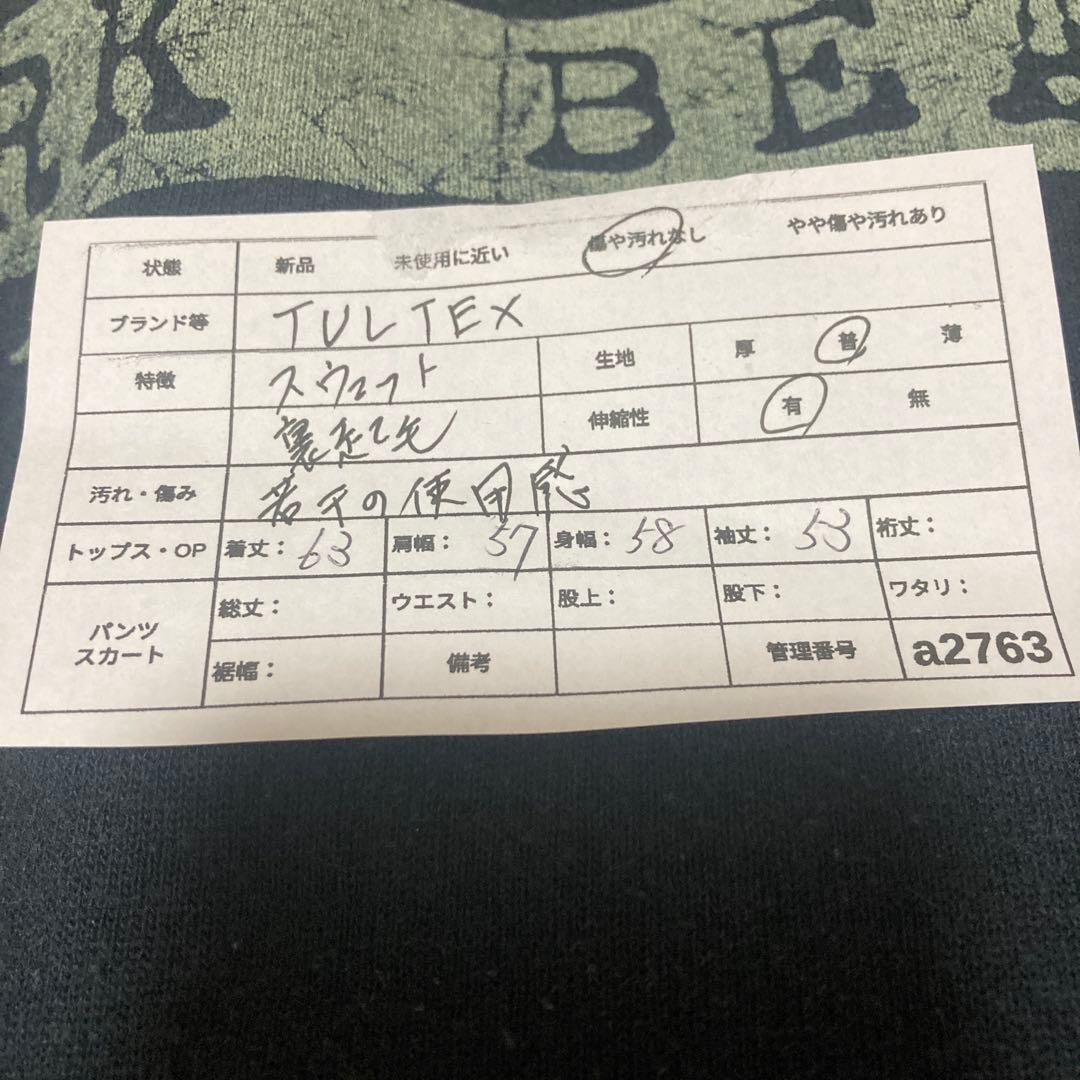 RK BEA
状態 新品 未使用に近い 傷や汚れなし やや傷や汚れあり
ブランド等 TULTEX
特徴 スウェット 生地 厚 普 薄
裏起毛 伸縮性 有 無
汚れ・傷み 若干の使用感
トップス・OP 着丈: 63 肩幅: 57 身幅: 58 袖丈: 53 裄丈:
パンツ スカート 総丈: ウエスト: 股上: 股下: ワタリ:
裾幅: 備考 管理番号 a2763